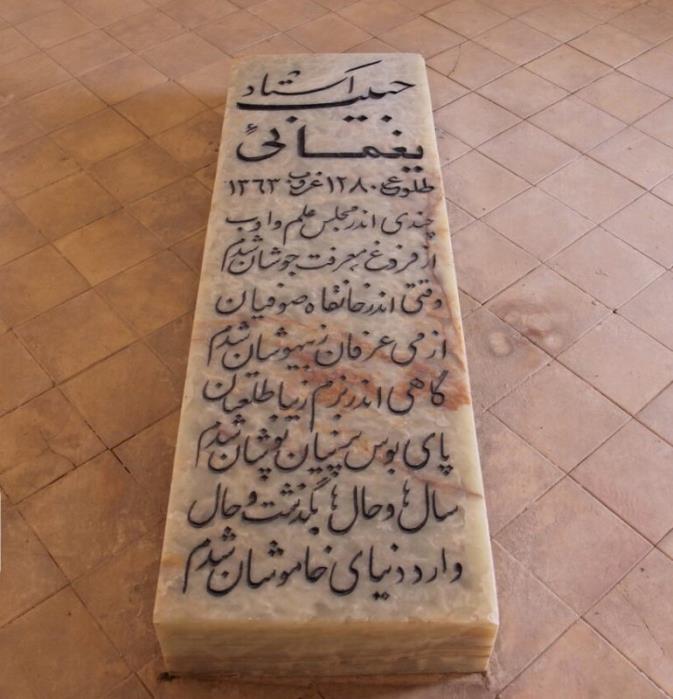 استاد حبیب
یغمائی
طلوع ۱۲۸۰ غروب ۱۳۶۳
چندی اندر مجلس علم و ادب
از فروغ معرفت جوشان شدم
وقتی اندر خانقاه صوفیان
از می عرفان ز بیهوشان شدم
گاهی اندر بزم زیبا طلعتان
پای بوس پرنیان پوشان شدم
سال ها و حال ها بگذشت و حال
وارد دنیای خاموشان شدم